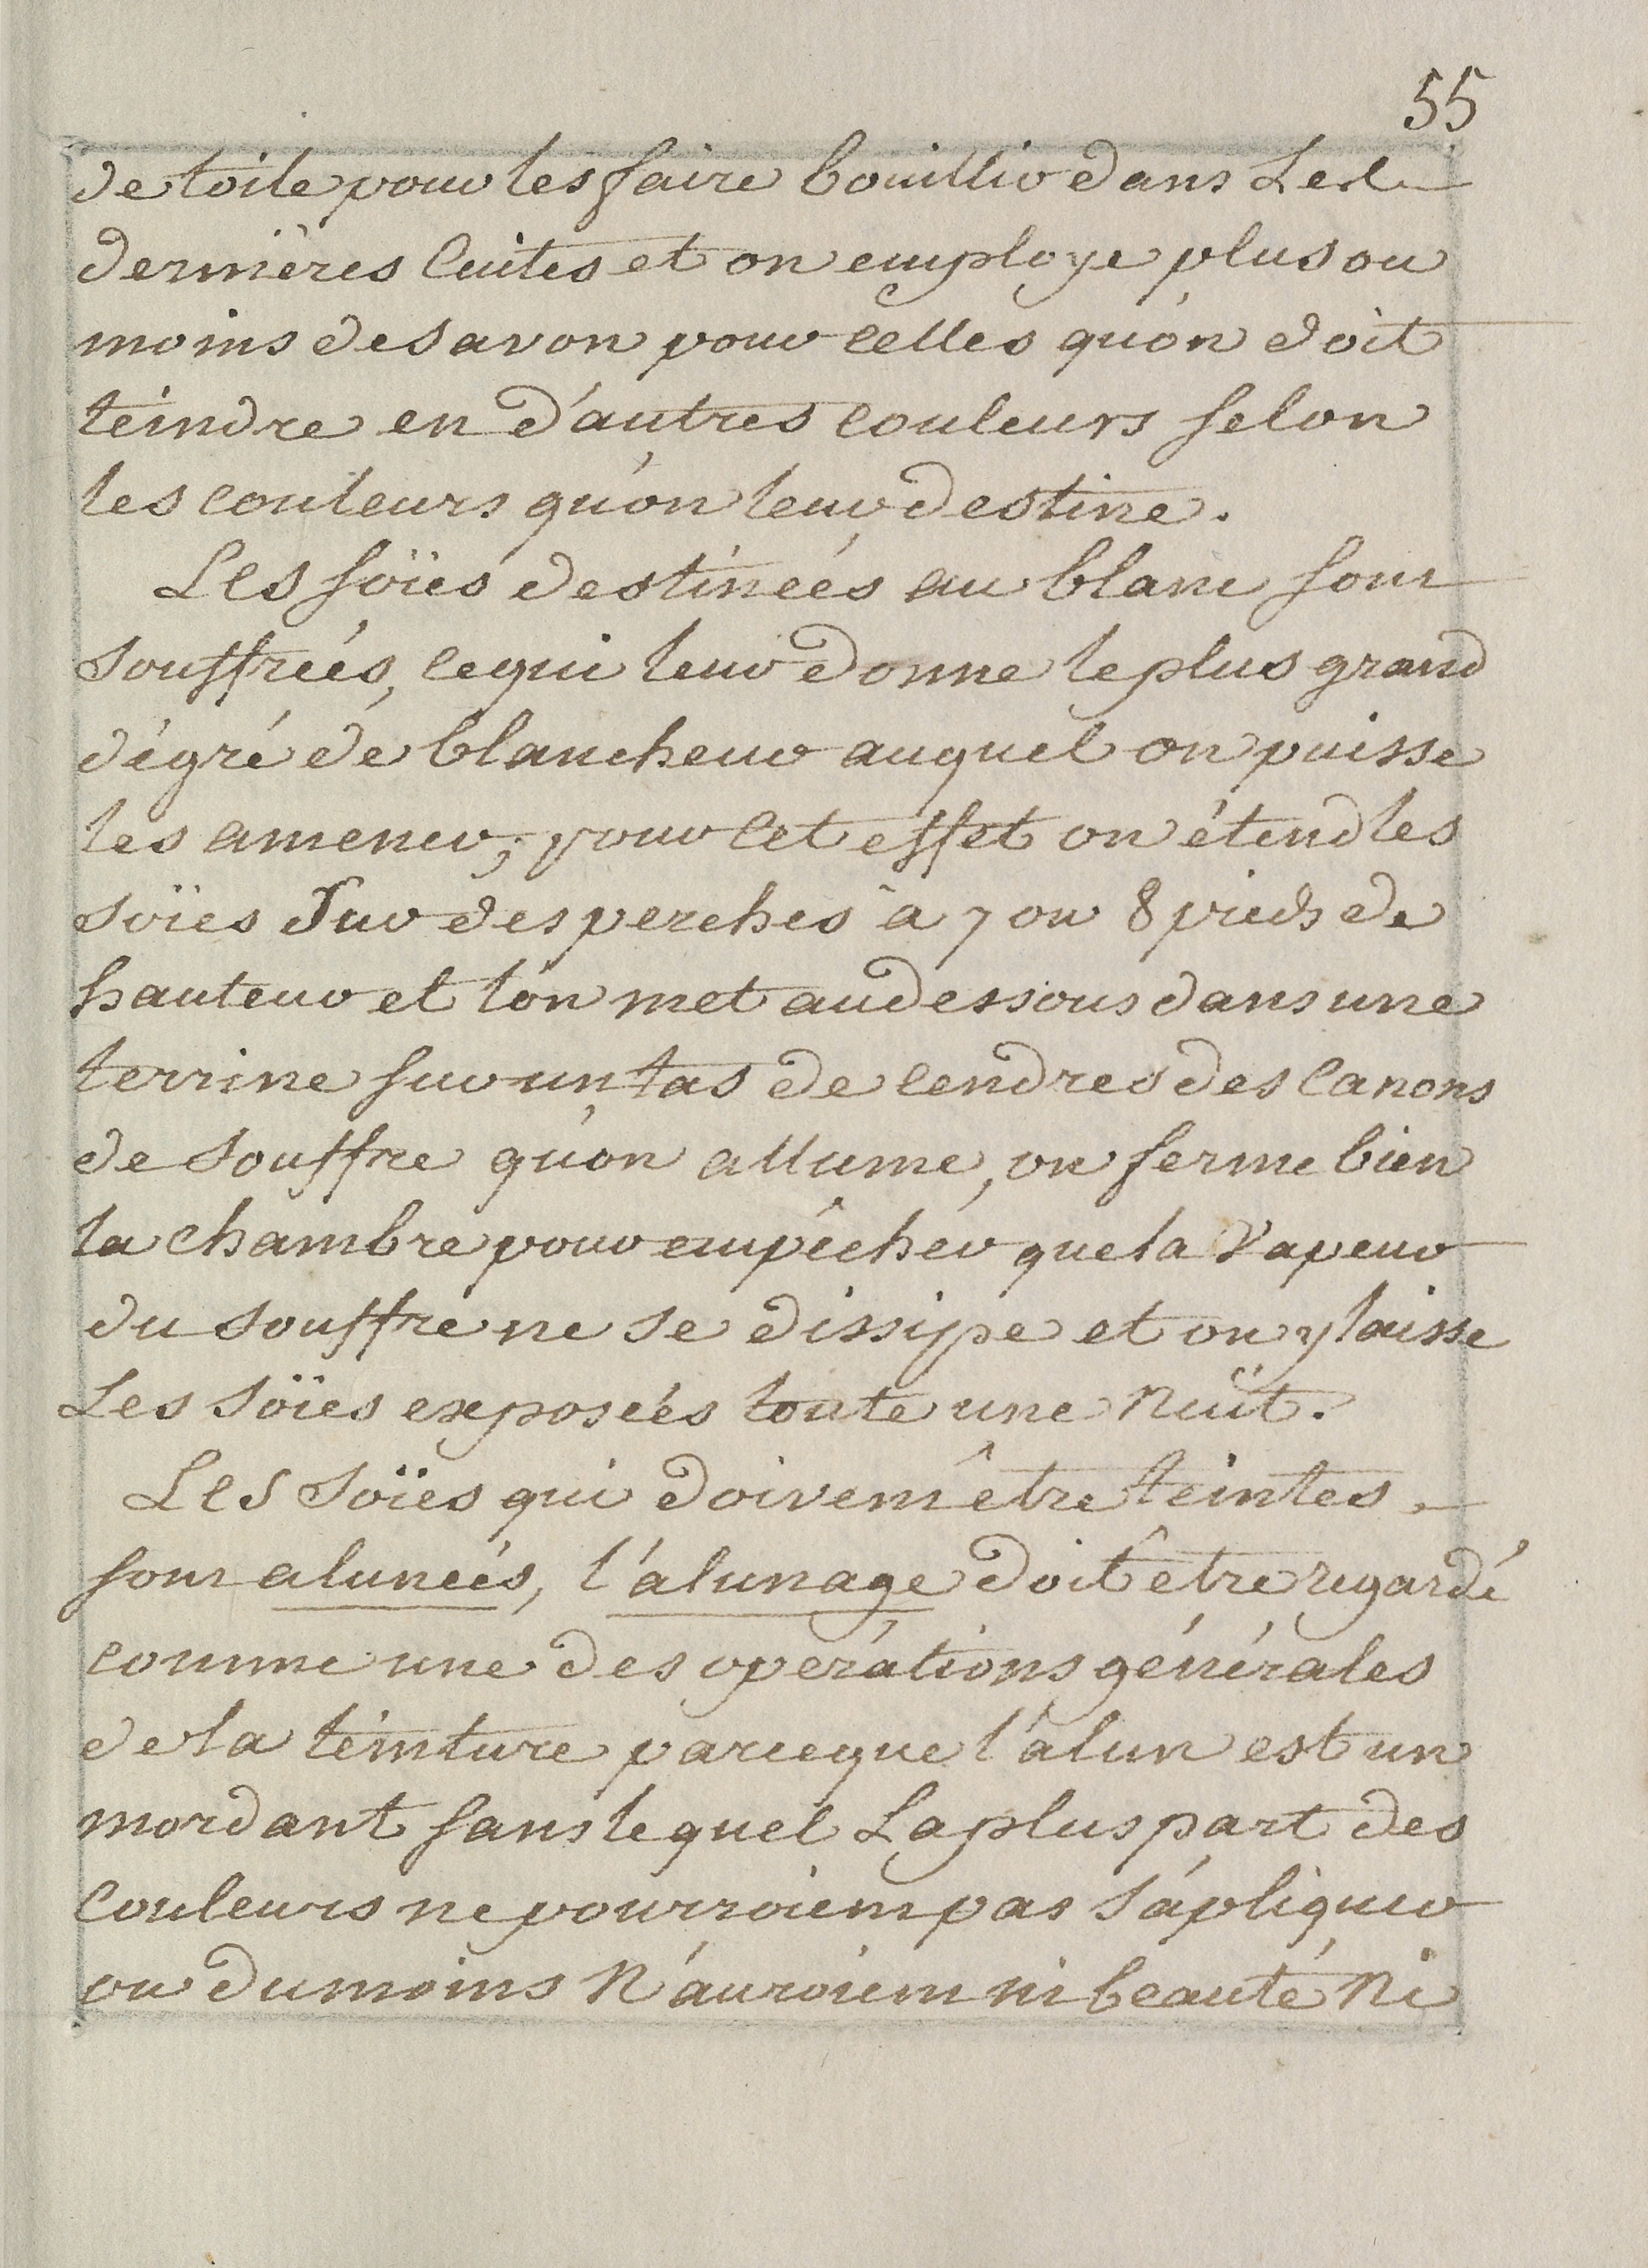 55
de toile pour les faire bouillir dans Les
dernières Cuites et on employe plus ou
moins de savon pour celles qu'on doit
teindre en d'autres couleurs selon
les couleurs qu'on leur destine.
Les soïes destineés au blanc sont
souffreés, ce qui leur donne le plus grand
dégré de blancheur auquel on puisse
les amener; pour cet effet on étend les
soïes Sur des perches à 7 ou 8 pieds de
hauteur et l'on met audessous dans une
terrine sur un tas de cendres des Canons
de souffre qu'on allume, on ferme bien
la chambre pour empêcher que la Vapeur
du souffre ne se dissipe et on y laisse
Les soïes exposeés toute une Nuit.
Les soïes qui doivent être teintes
sont aluneés, l'alunage doit être regardé
comme une des opérations générales
de la teinture parceque l'alun est un
mordant sans lequel La pluspart des
Couleurs ne pourroient pas s'apliquer
ou du moins N'auroient ni beauté Ni